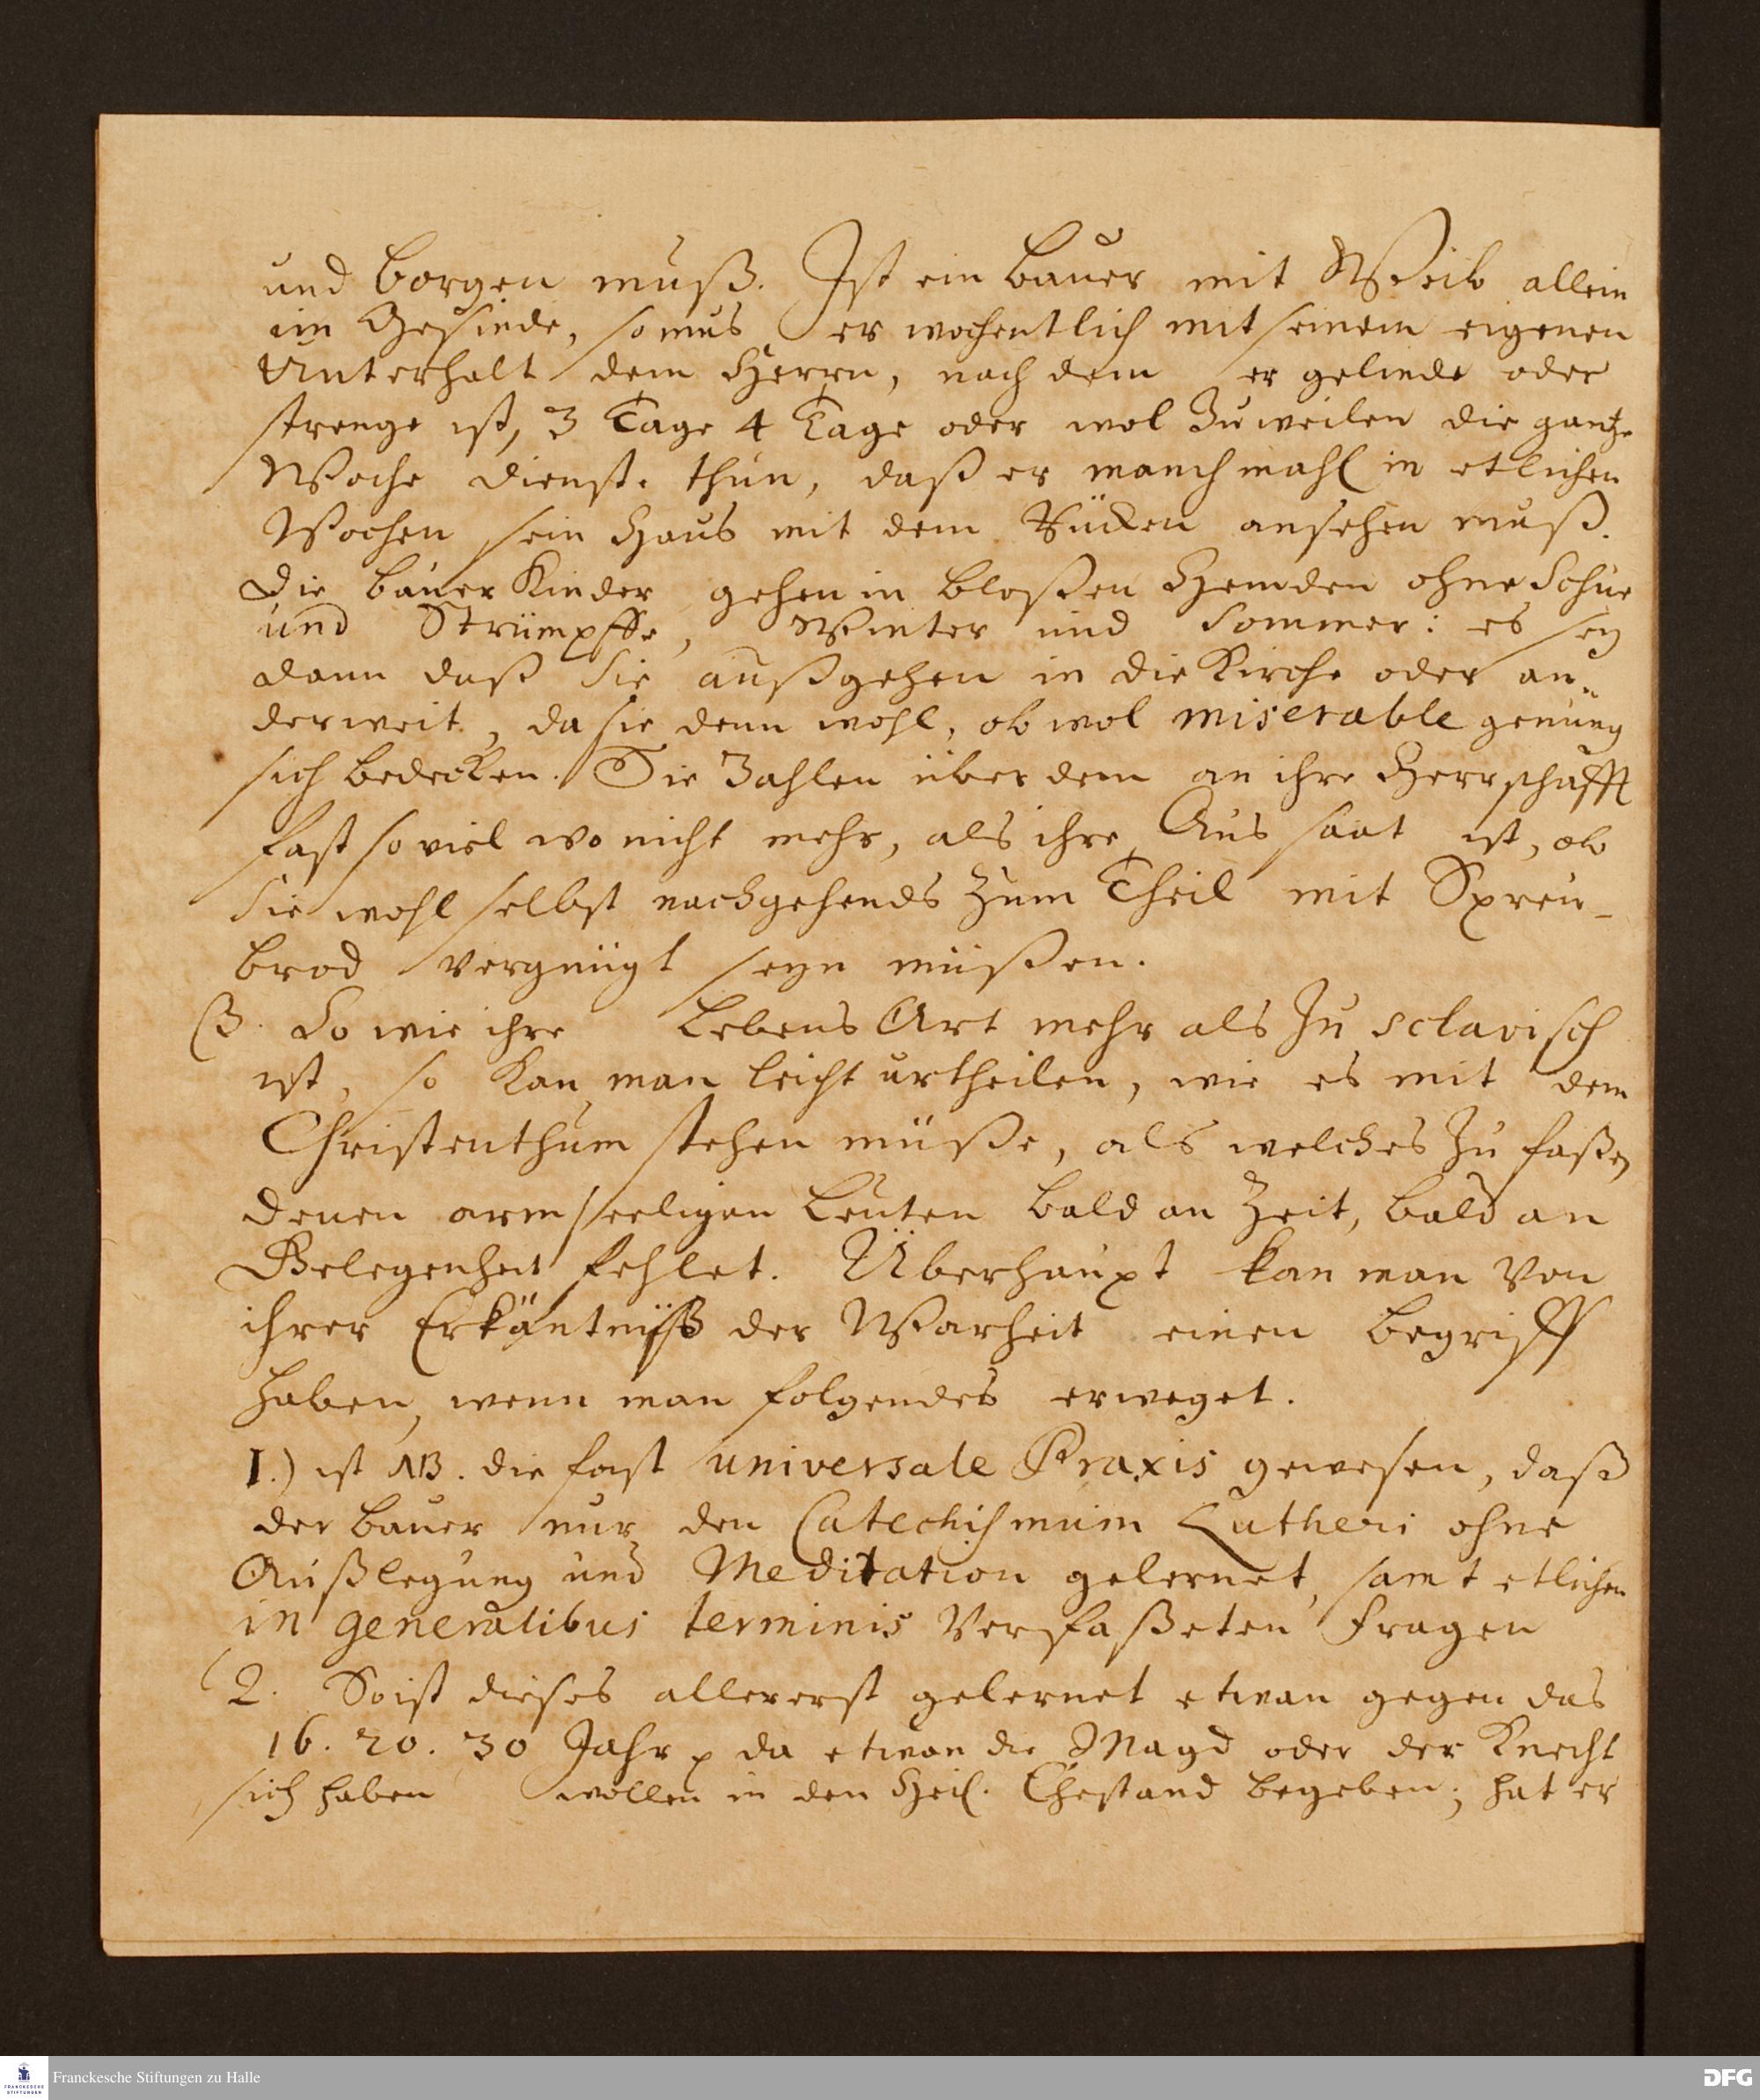 und borgen muß. Ist ein Bauer mit Weib allein
im Gesinde, so mus er wochentlich mit seinem eigenen
Unterhalt dem Herrn, nach dem er gelinde oder
strenge ist, 3 Tage 4 Tage oder wol Zuweilen die gantze
Woche dienste thun, daß er manchmahl in etlichen
Wochen sein Haus mit dem Rücken ansehen muß.
Die bauer Kinder gehen in bloßen Hemden ohne Schue
und Strümpffe, Winter und Sommer: es sey
dann daß Sie außgehen in die Kirche oder an-
derweit, da sie denn wohl, ob wol miserable genung
sich bedecken. Sie Zahlen über dem an ihre Herrschafft
fast so viel wo nicht mehr, als ihre Aus saat ist, ob
Sie wohl selbst nachgehends Zum Theil mit Spreu-
brod vergnügt seyn müßen.
β. So wie ihre Lebens Art mehr als Zu sclavisch
ist, so Kan man leicht urtheilen, wie es mit dem
Christenthum stehen müße, als welches Zu faßen
denen armseeligen Leuten bald an Zeit, bald an
Gelegenheit fehlet. Überhaupt kan man Von
ihrer Erkäntniß der Warheit einen begriff
haben, wenn man folgendes erweget.
1.) ist NB. die fast universale Praxis gewesen, daß
der bauer nur den Catechismum Lutheri ohne
Außlegung und Meditation gelernet, samt etlichen
in generalibus terminis Verfaßeten Fragen
2. So ist dieses allererst gelernet etwan gegen das
16. 20. 30 Jahr p da etwan die Magd oder der Knecht
sich haben wollen in den Heil. Ehestand begeben; hat er
Franckesche Stiftungen zu Halle
FRANCKESCHE
STIFTUNGEN
DFG